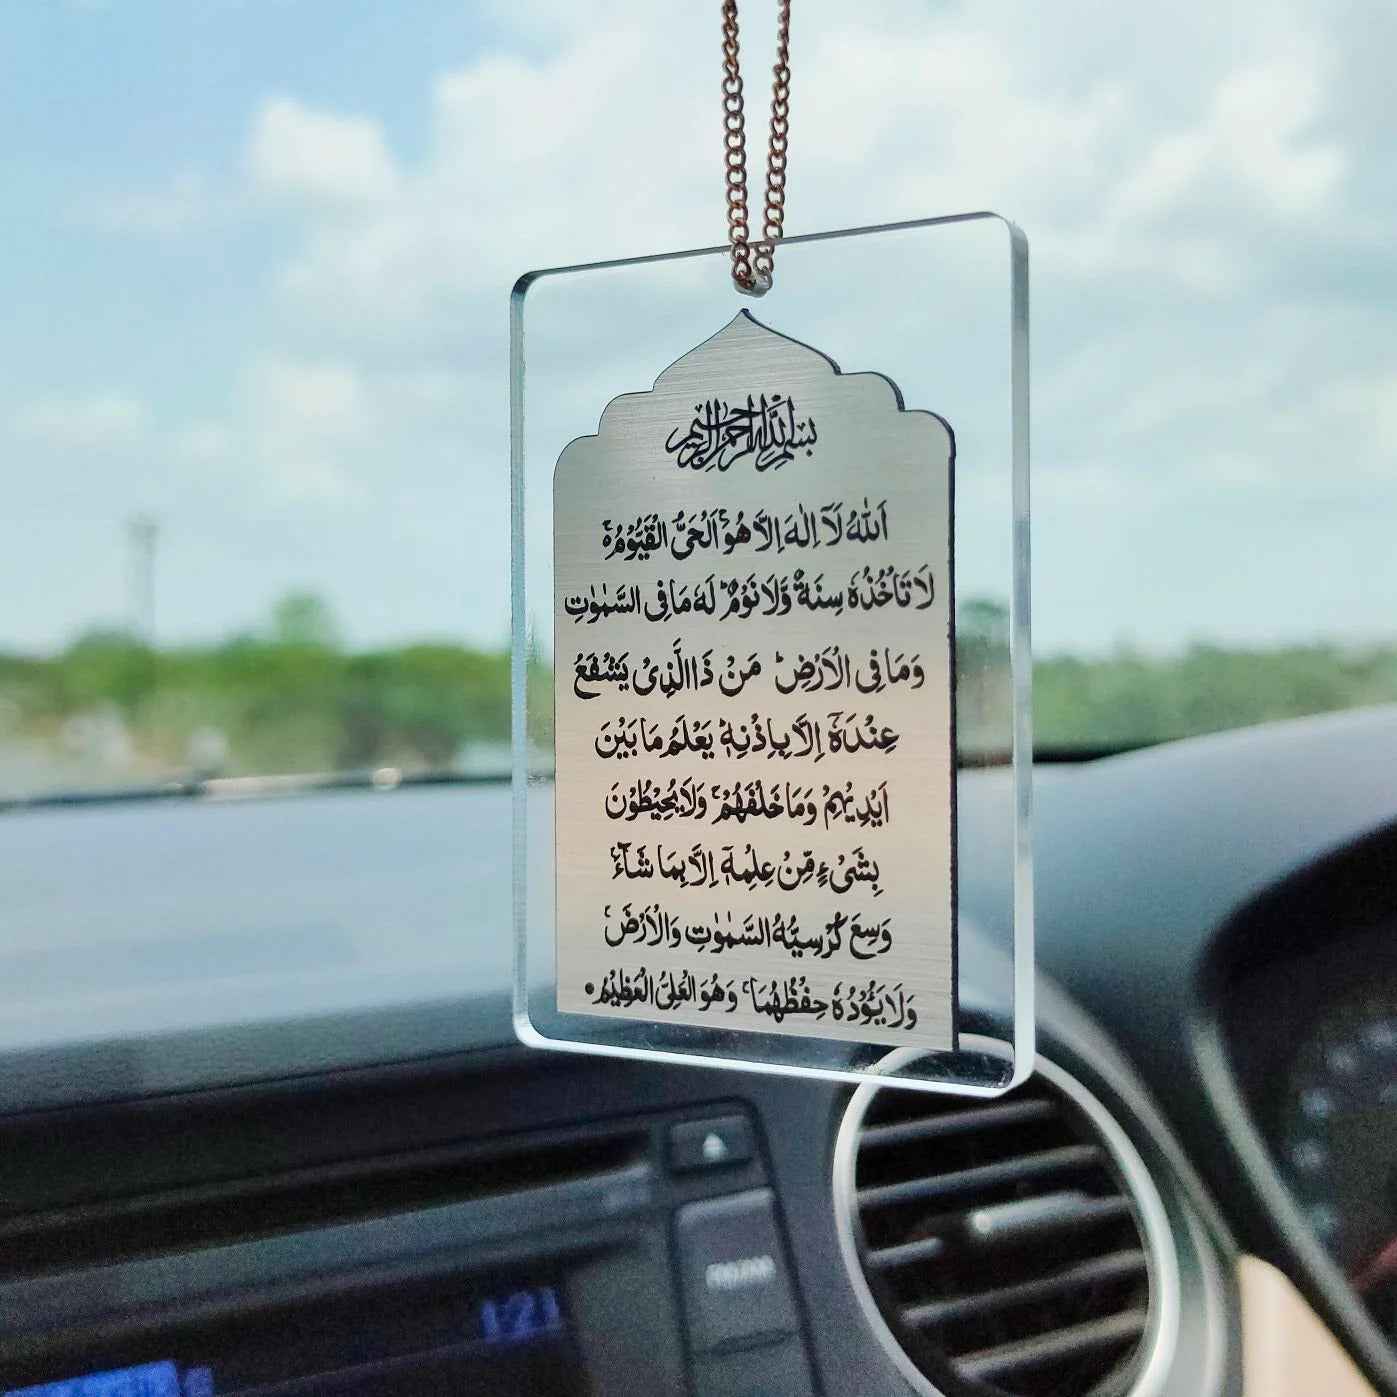 بسم الله الرحمن الرحيم
اَللّٰهُ لَآ اِلٰهَ اِلَّا هُوَۚ اَلْحَیُّ الْقَیُّوْمُ ۚ۬
لَا تَاْخُذُهٗ سِنَةٌ وَّلَا نَوْمٌؕ لَهٗ مَا فِی السَّمٰوٰتِ
وَمَا فِی الْاَرْضِؕ مَنْ ذَا الَّذِیْ یَشْفَعُ
عِنْدَهٗۤ اِلَّا بِاِذْنِهٖؕ یَعْلَمُ مَا بَیْنَ
اَیْدِیْهِمْ وَمَا خَلْفَهُمْۚ وَلَا یُحِیْطُوْنَ
بِشَیْءٍ مِّنْ عِلْمِهٖۤ اِلَّا بِمَا شَآءَۚ
وَسِعَ كُرْسِیُّهُ السَّمٰوٰتِ وَالْاَرْضَۚ
وَلَا یَـُٔوْدُهٗ حِفْظُهُمَاۚ وَهُوَ الْعَلِیُّ الْعَظِیْمُ
1:21